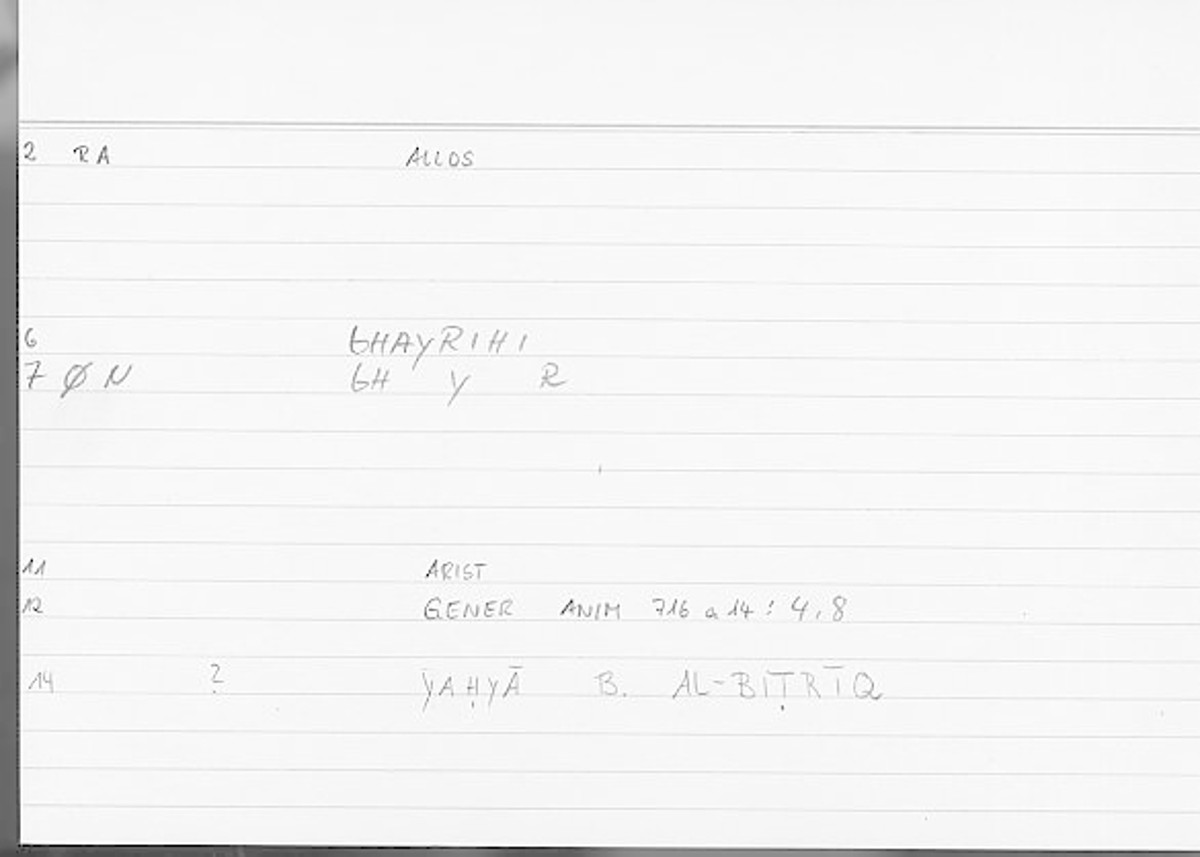 2 RA ALLOS
6 GHAYRIHI
7 Ø N GH Y R
11 ARIST
12 GENER ANIM 716 a 14 : 4,8
14 ? YAḤYĀ B. AL-BIṬRĪQ